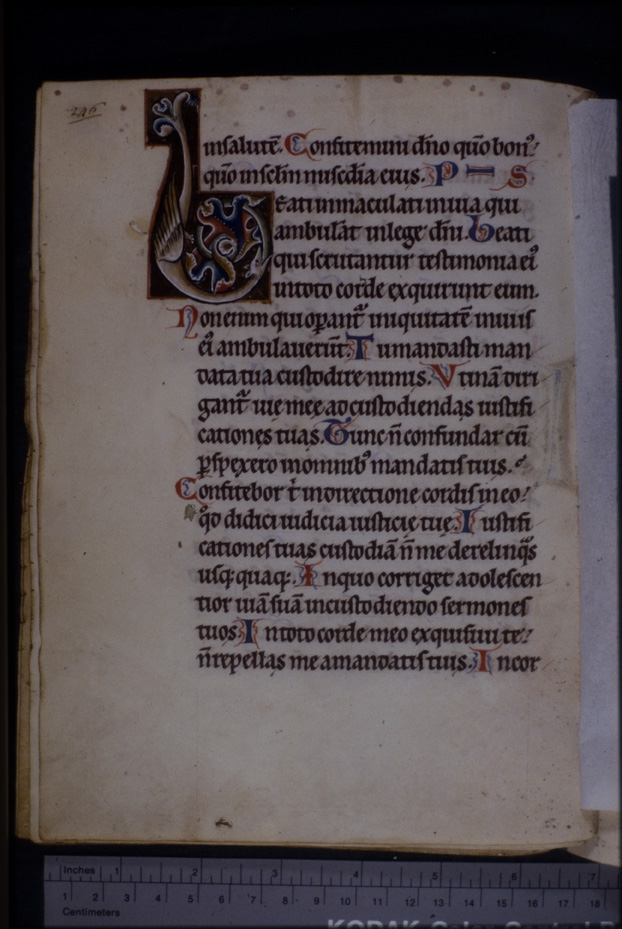 246
in salutē. Confitemini dn̄o qūo bonꝰ:
qūo in sclm̄ misc̄dia eius. P S
Beati inmaculati in uia qui
ambulāt in lege dn̄i. Beati
qui scrutantur testimonia eiꝰ
in toto corde exquirunt eum.
Non enim qui oꝑantᷣ iniquitatē in uiis
eiꝰ ambulauerūt. Tu mandasti man
data tua custodire nimis. Vtinā diri
gantᷣ uie mee ad custodiendas iustifi
cationes tuas. Tunc n̄ confundar cū
ꝑspexero in omnibꝰ mandatis tuis.
Confitebor t̄ in directione cordis in eo:
qd̄ didici iudicia iusticię tuę. Iustifi
cationes tuas custodiā n̄ me derelinq̄s
usq; quaq;. In quo corriget adolescen
tior uiā suā in custodiendo sermones
tuos. In toto corde meo exquisiui te:
n̄ repellas me a mandatis tuis. In cor
Inches 1 2 3 4 5 6 7
1 2 3 4 5 6 7 8 9 10 11 12 13 14 15 16 17 18
Centimeters
KODAK Color Control